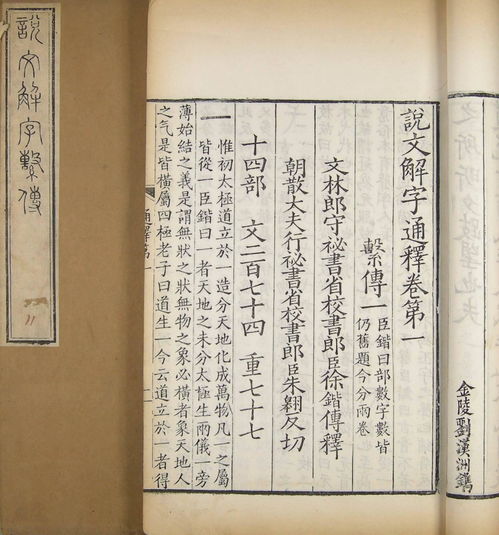 金陵劉漢洲鐫
說文解字通釋卷第一
繫傳一
臣鍇曰部數字數皆
仍舊題今分兩卷
文林郎守祕書省校書郎臣徐鍇傳釋
朝散大夫行祕書省校書郎臣朱翱反切
十四部 文二百七十四 重七十七
一
惟初太極道立於一造分天地化成萬物凡一之屬
皆從一臣鍇曰一者天地之未分太極生兩儀一旁
薄始結之義是謂無狀之狀無物之象必橫者象天地人
之气是皆橫屬四極老子曰道生一今云道立於一者得
說文解字繫傳
11